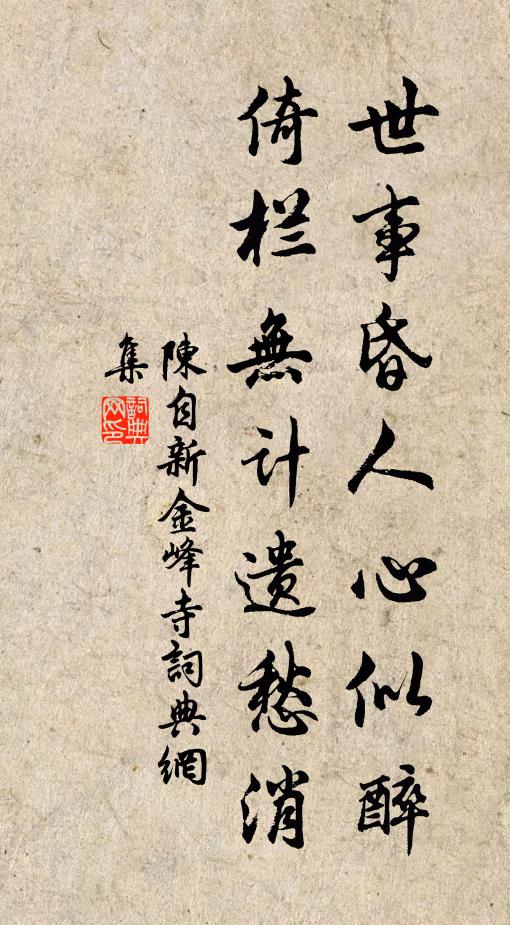 世事昏人心似醉
倚栏無计遗愁消
陳自新金峰寺詞典網
集
詞典
网印